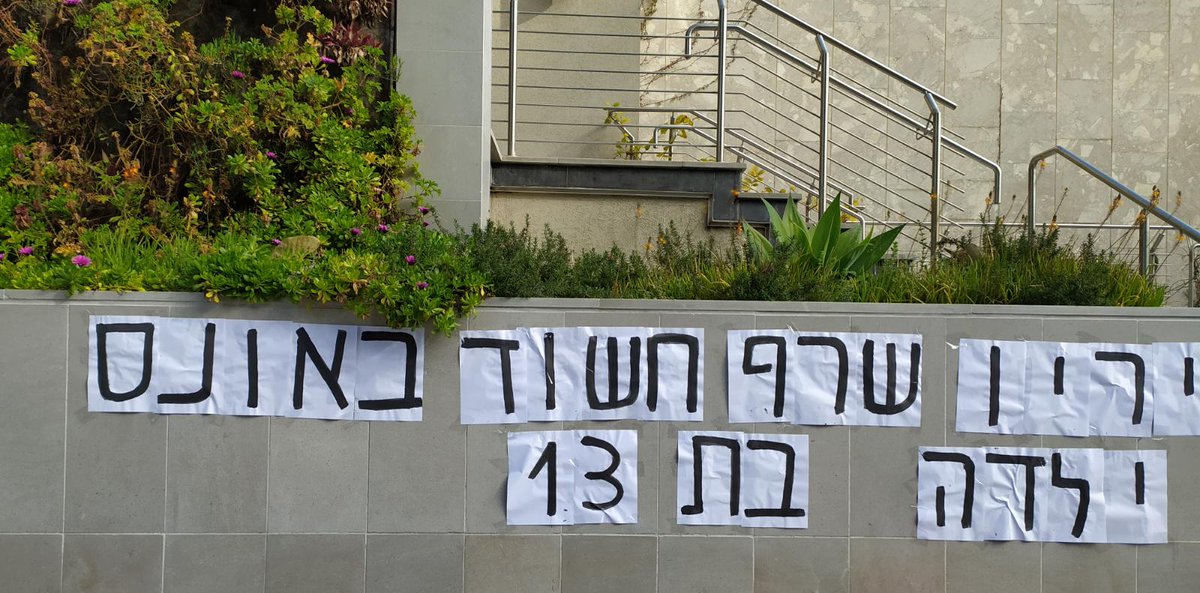 ירין שרף חשוד באונס
ילדה בת 13